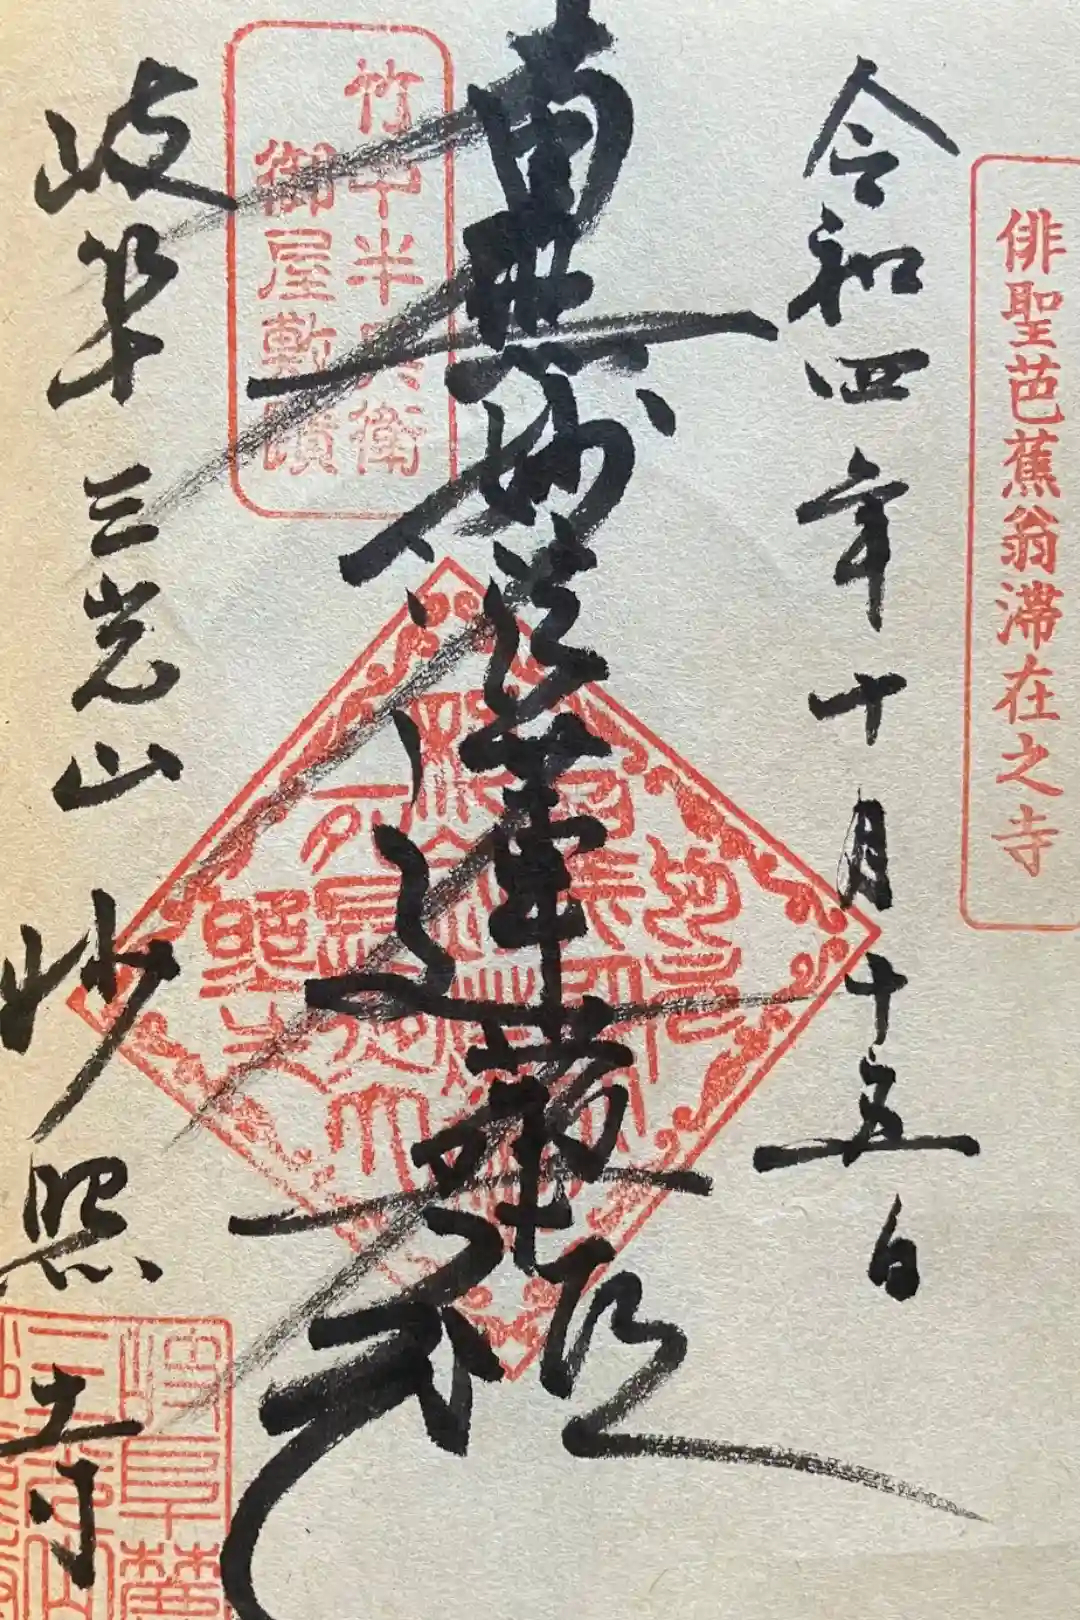 俳聖芭蕉翁滞在之寺
令和四年十月十五日
南無妙法蓮華経
竹中半兵衛
御屋敷蹟
岐阜 三光山 妙照寺